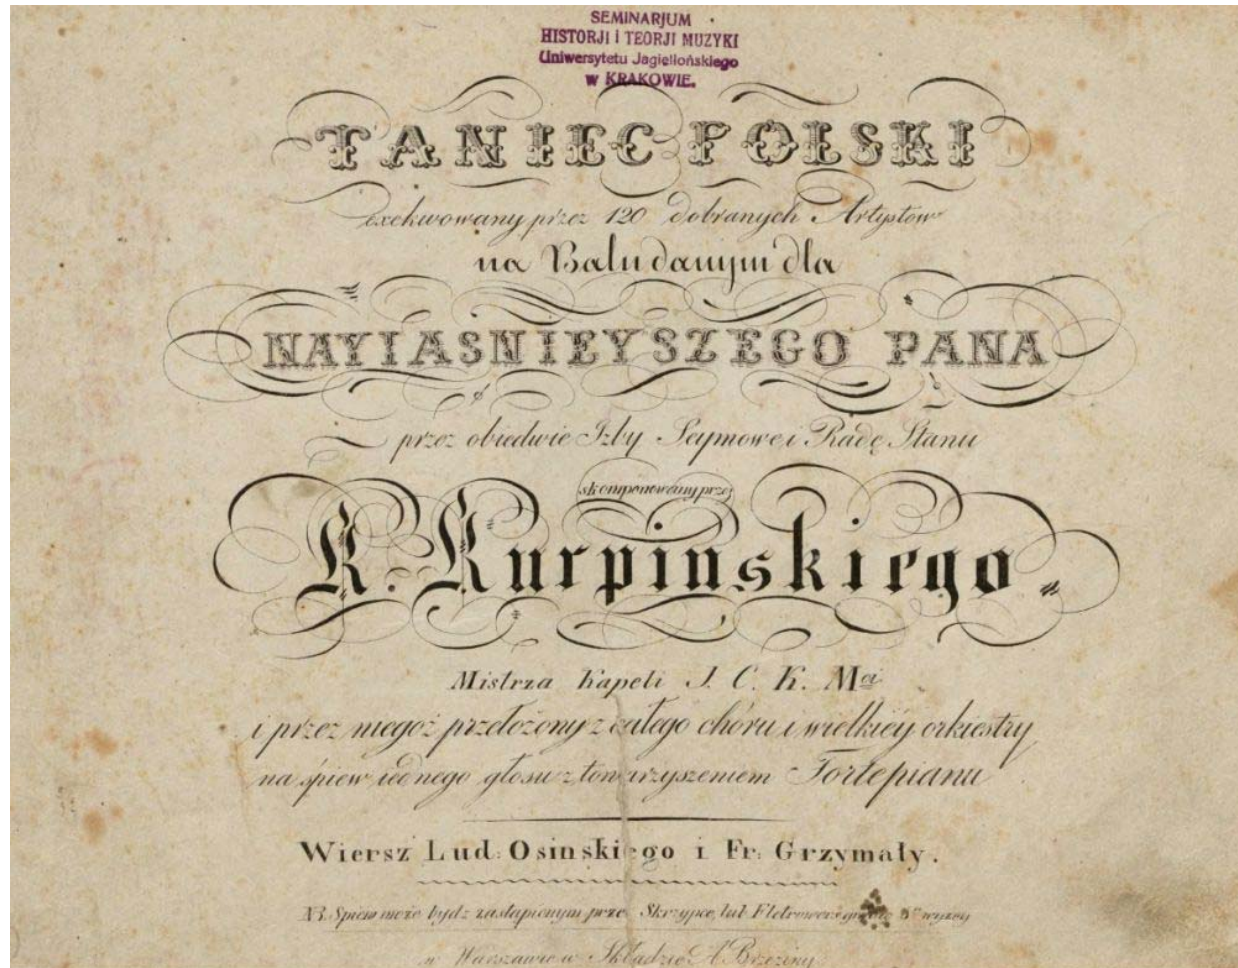 SEMINARJUM
HISTORJI i TEORJI MUZYKI
Uniwersytetu Jagiellońskiego
w KRAKOWIE.
TANIEC POLSKI
exekwowany przez 120 dobranych Artystów
na Balu danym dla
NAYIASNIEYSZEGO PANA
przez obiedwie Izby Seymowe i Radę Stanu
skomponowany przez
K. Kurpinskiego.
Mistrza Kapeli J. C. K. Mci
i przez niegoż przełożony z całego chóru i wielkiéy orkiestry
na śpiew iednego głosu z towarzyszeniem Fortepianu
Wiersz Lud: Osinskiego i Fr: Grzymały.
NB. Spiew może bydz zastąpionym przez Skrzypce, lub Fletrowers 8va wyzey
w Warszawie w Składzie A Brzeziny